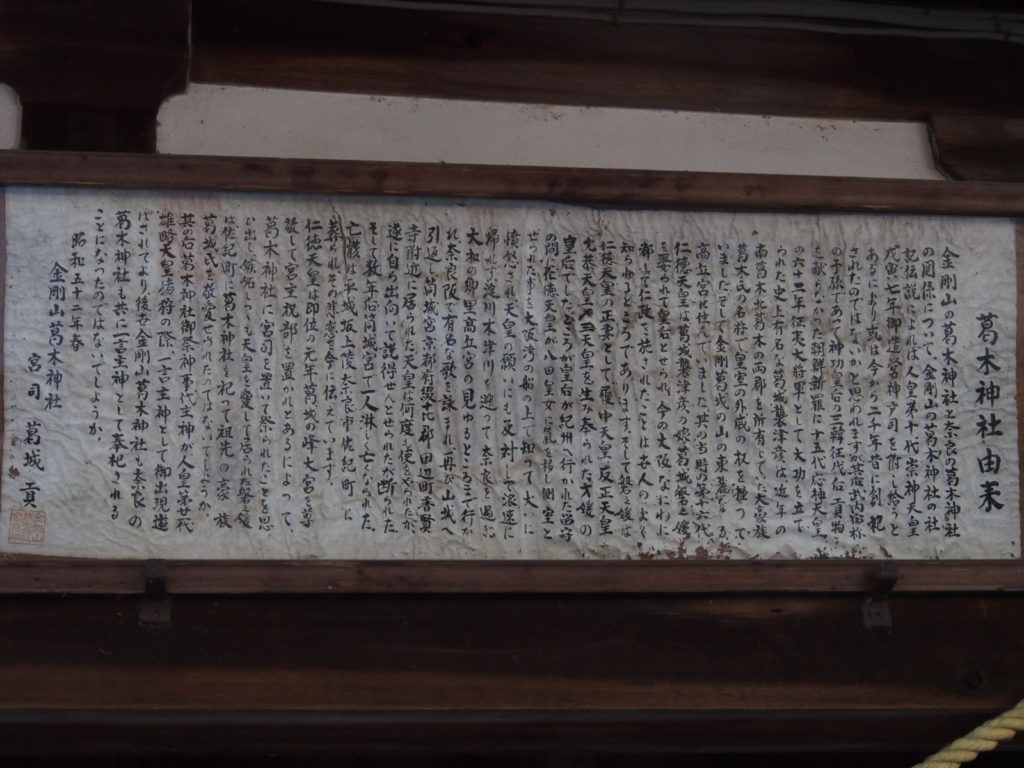 葛木神社由来
金剛山の葛木神社と奈良の葛木神社
の関係について、金剛山の葛木神社の社
記伝説によれば人皇第十代崇神天皇
戊寅七年御造宮神戸司を附し給うと
あるにより或は今から二千年昔に創祀
されたのではないかと思われますが其后武内宿祢
の子孫であって神功皇后の三韓征伐后貢物
を献らなかった朝鮮新羅に十五代応神天皇
の六十二年征夷大将軍として大功を立て
られた史上有名な葛城襲津彦は近年の
南葛木北葛木の両郡を所有していた大豪族
葛木氏の名将で皇室の外戚の权を極って
いましたそして金剛葛城の山の東麓なる
高丘宮に住んでいました其の当時の第十六代
仁徳天皇は葛城襲津彦の娘葛城磐之媛
を娶られて皇后とせられ今の大阪なにわに
都して仁政を施しされたことは各人のよく
知られるところでありますそして磐之媛は
仁徳天皇の正妻として履中天皇反正天皇
允恭天皇の三天皇を生み奉られた才媛の
皇后でしたところが皇后が紀州へ行かれた留守
の間に仁徳天皇が八田皇女に寵を移し側室と
せられた事を大阪湾の船の上で知って大いに
憤慨され天皇の願いにも応対しで浪速に
帰れず淀川木津川を遡って奈良を過ぎ
大和の郷里高宮の見ゆるところまで行か
れ奈良阪で有名な歌を詠まれ再び山城へ
引返し葛城宮京都府綴喜郡田辺町普賢
寺附近に居られた天皇は何度も使をやられたが
遂に自ら出向いて説得せんとせられたが断られた
そして数年后筒城宮で一人淋しく亡くなられた
亡骸は平城坂上陵奈良市佐紀町に
葬られその非恋を今に伝えています。
仁徳天皇は即位の元年葛城の峰大宮を尊
敬して宮主祝部を置かれとあるによって、
葛木神社に宮司を置いて祭られたことを思
い出し嫉妬しつつも天皇を愛して居られた磐之媛
は佐紀町に葛木神社を祀って祖先の豪族
葛城氏を敬愛せられたのではないでしょうか。
其の后葛木神社御祭神事代主神が人皇二十一代
雄略天皇猪狩の際、一言主神として御出現遊
ばされてより後も金剛山葛木神社も奈良の
葛木神社も共に一言主神として奉祀される
ことになったのではないでしょうか。
昭和五十二年春
金剛山葛木神社
宮司 葛城 貢